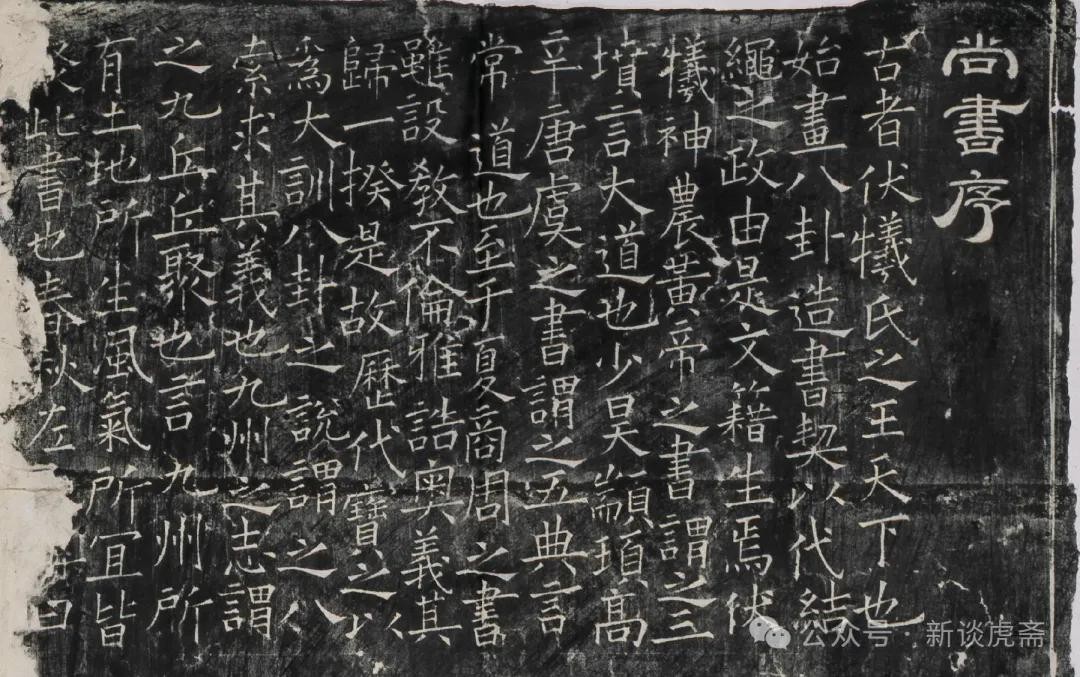 尚書序
古者伏犧氏之王天下也
始畫八卦造書契以代結
繩之政由是文籍生焉伏
犧神農黃帝之書謂之三
墳言大道也少昊顓頊高
辛唐虞之書謂之五典言
常道也至于夏商周之書
雖設教不倫雅誥奧義其
歸一揆是故歷代寶之以
爲大訓八卦之說謂之八
索求其義也九州之志謂
之九丘丘聚也言九州所
有土地所生風氣所宜皆
此書也春秋左曰
公众号·新谈虎斋